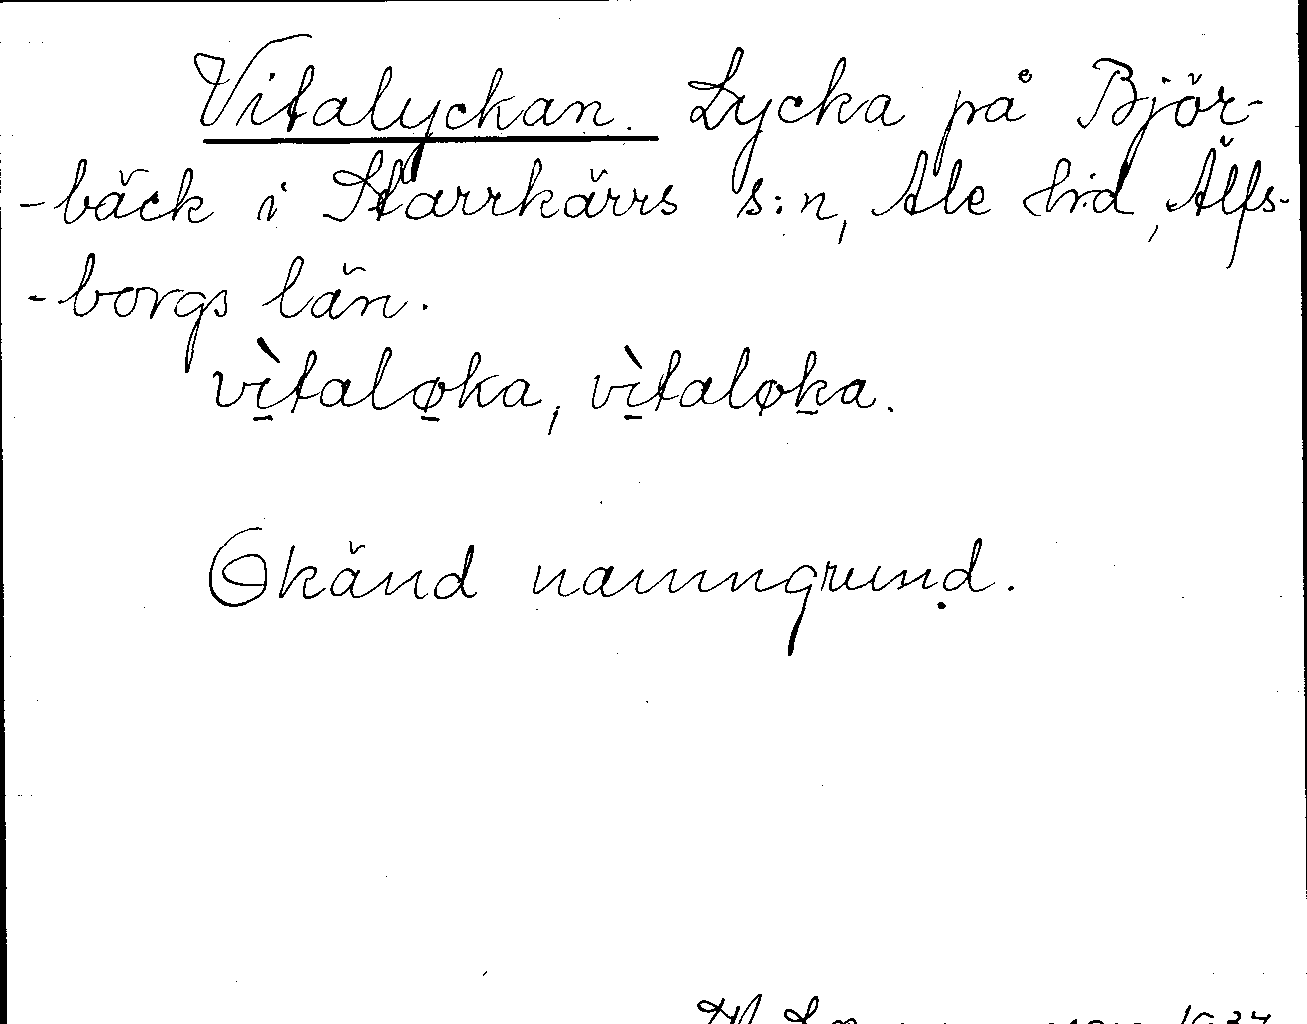 Vitalyckan. Lycka på Björ-
-bäck i Starrkärrs s:n, Ale hrd, Älfs-
-borgs län.
vı̱̀talø̱ka, vı̱̀taløḵa.
Okänd namngrund.